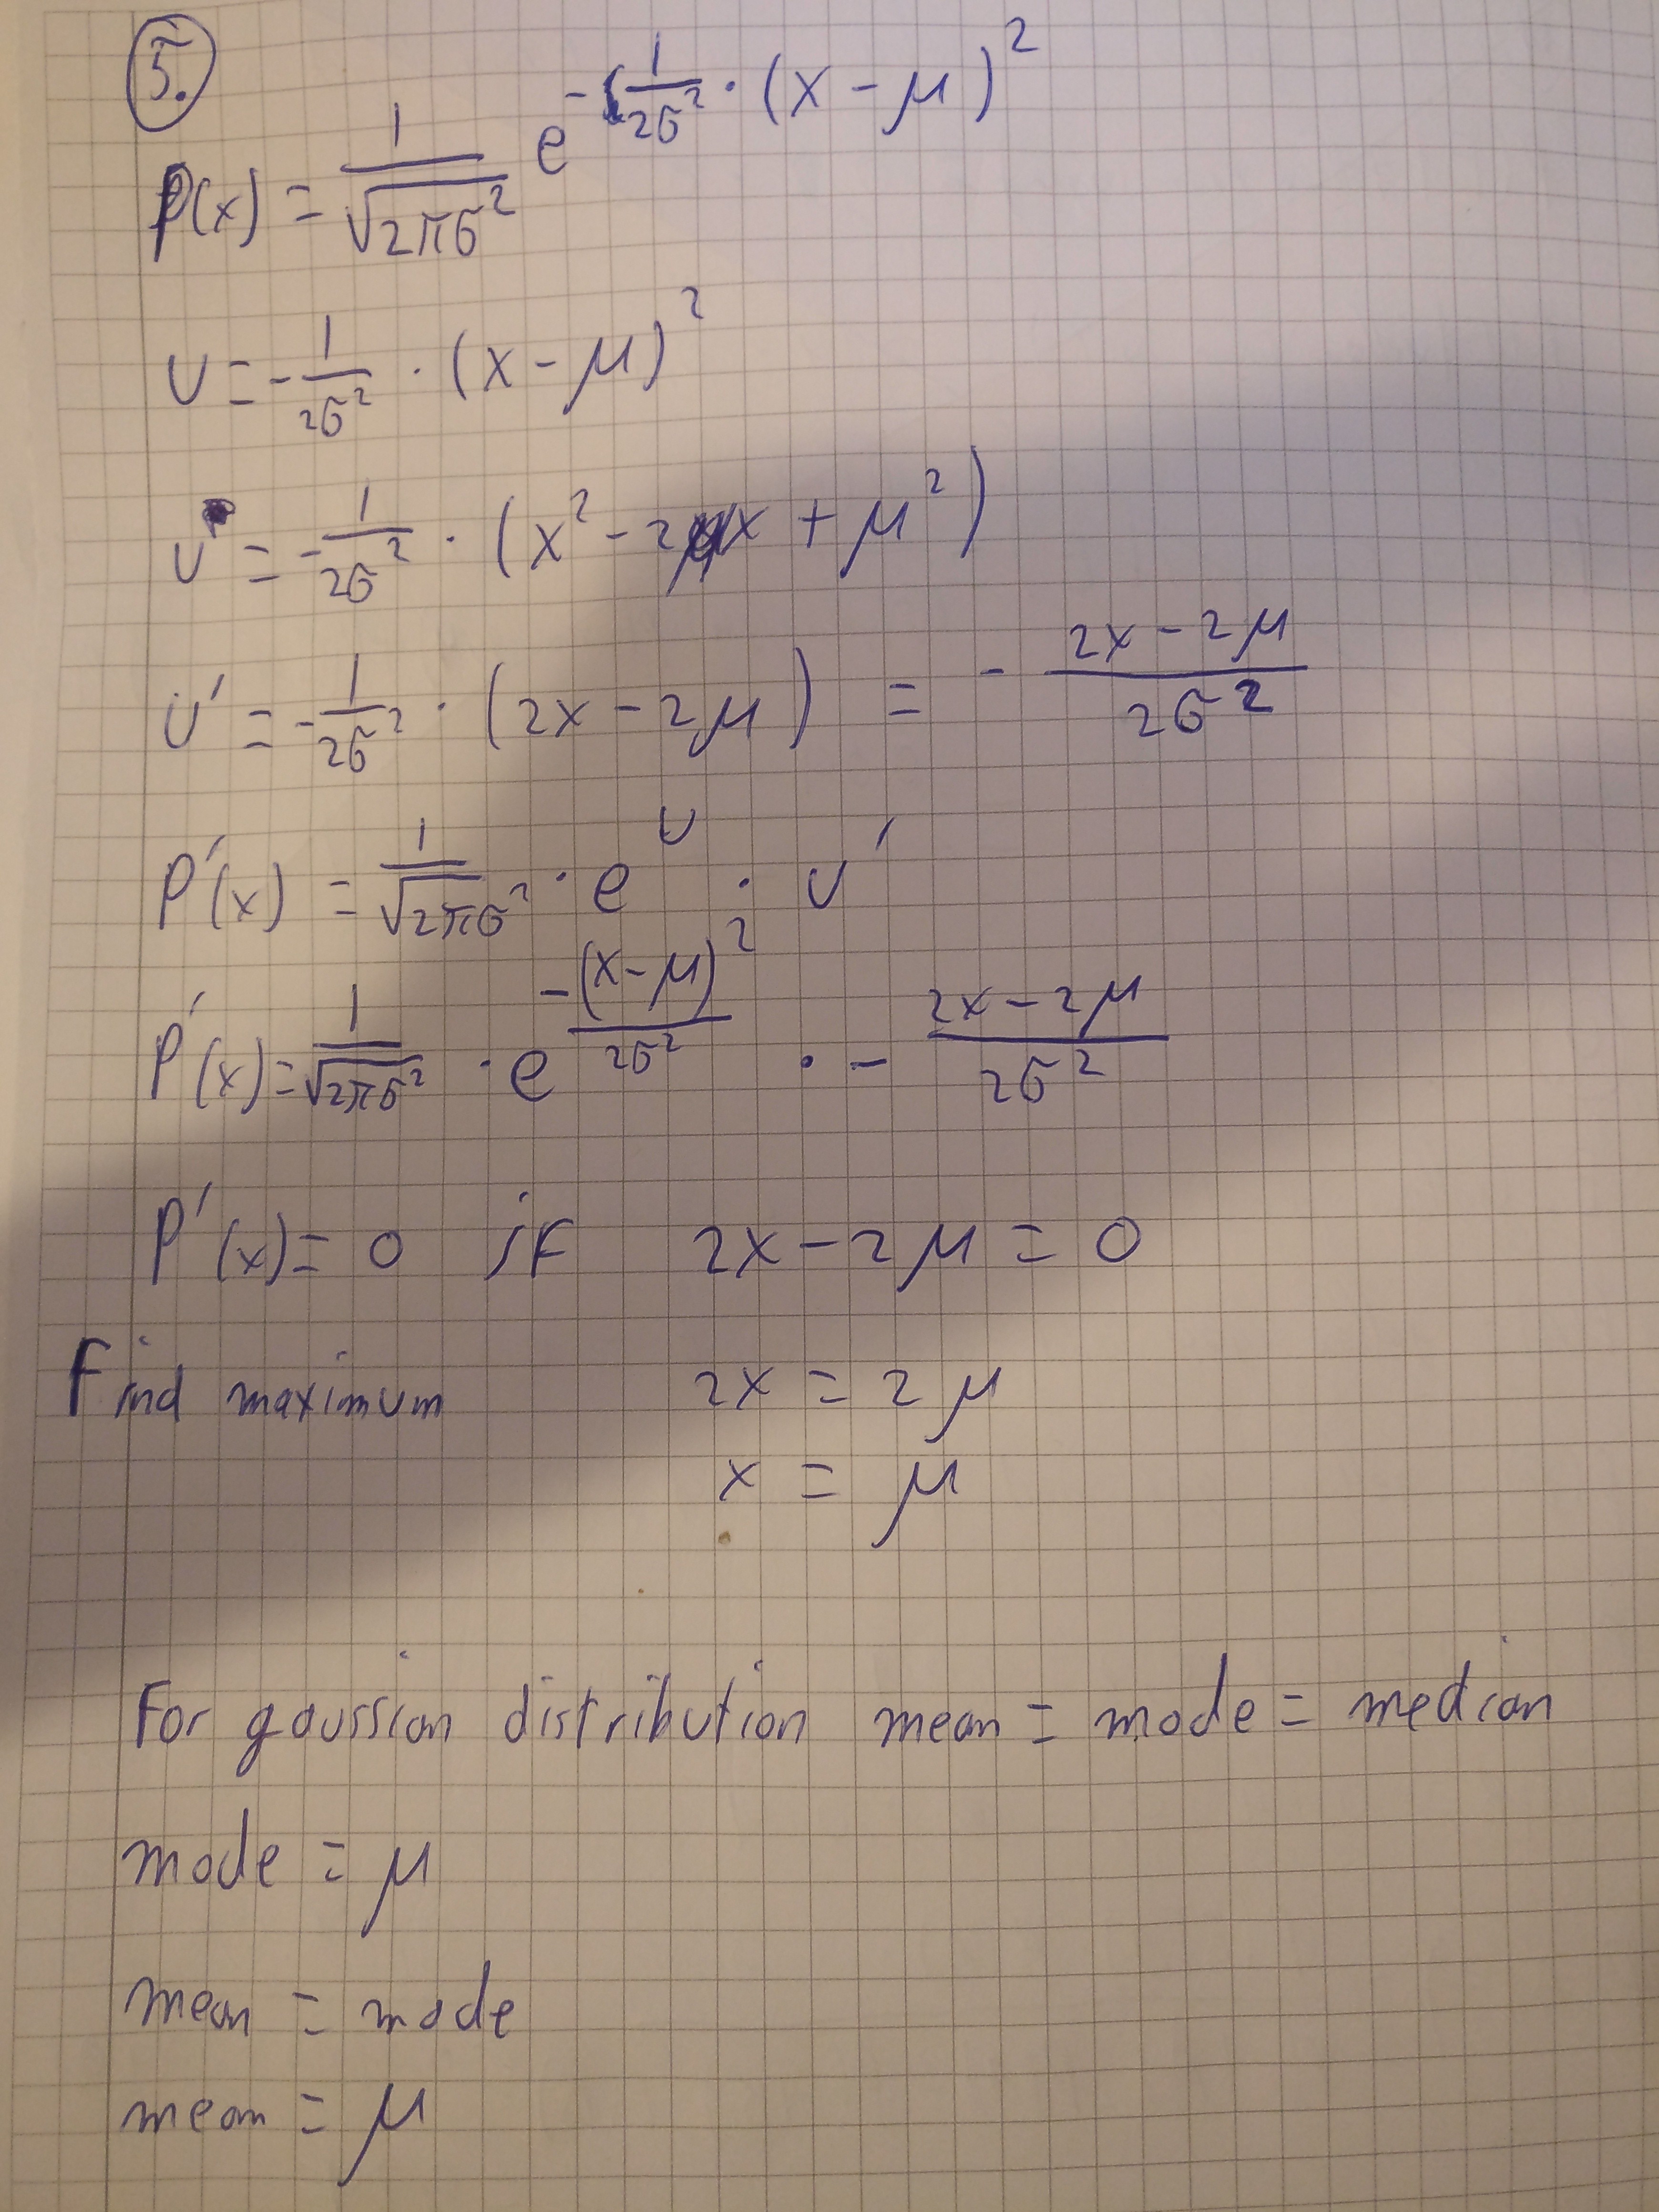 5.
P(x) = 1/√(2πσ²) e^(-1/(2σ²) · (x - μ)²)
U = -1/(2σ²) · (x - μ)²
U = -1/(2σ²) · (x² - 2μx + μ²)
U' = -1/(2σ²) · (2x - 2μ) = - (2x - 2μ)/(2σ²)
P'(x) = 1/√(2πσ²) · e^U · U'
P'(x) = 1/√(2πσ²) · e^(-(x-μ)²/(2σ²)) · - (2x - 2μ)/(2σ²)
P'(x) = 0 if 2x - 2μ = 0
Find maximum 2x = 2μ
x = μ
For gaussian distribution mean = mode = median
mode = μ
mean = mode
mean = μ